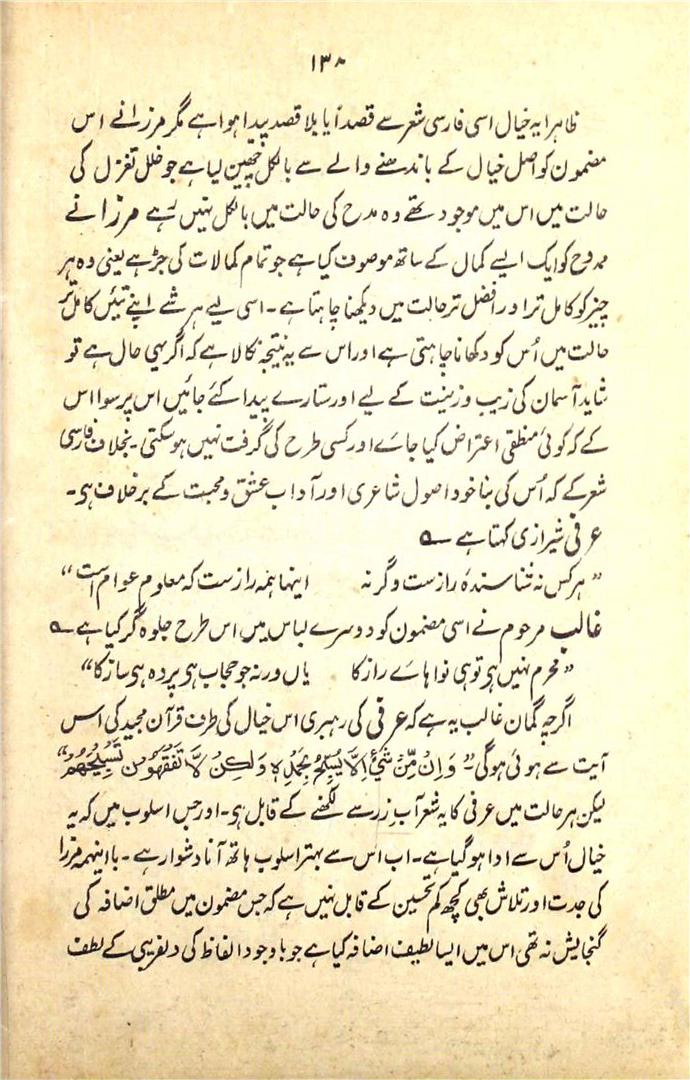 ۱۳۸
ظاہرا یہ خیال اسی فارسی شعر سے قصداً یا بلا قصد پیدا ہوا ہے مگر مرزا نے اس
مضمون کو اصل خیال کے باندھنے والے سے بالکل چھین لیا ہے جو خلل تغزل کی
حالت میں اس میں موجود تھے وہ مدح کی حالت میں بالکل نہیں رہے مرزا نے
ممدوح کو ایک ایسے کمال کے ساتھ موصوف کیا ہے جو تمام کمالات کی جڑ ہے یعنی وہ ہر
چیز کو کامل تر اور افضل تر حالت میں دیکھنا چاہتا ہے۔ اسی لیے ہر شے اپنے تئیں کامل تر
حالت میں اُس کو دکھانا چاہتی ہے اور اس سے یہ نتیجہ نکالا ہے کہ اگر یہی حال ہے تو
شاید آسمان کی زیب و زینت کے لیے اور ستارے پیدا کئے جائیں اس پر سوا اس
کے کہ کوئی منطقی اعتراض کیا جائے اور کسی طرح کی گرفت نہیں ہو سکتی۔ بخلاف فارسی
شعر کے کہ اُس کی بنا خود اصول شاعری اور آداب عشق و محبت کے برخلاف ہی۔
عرفی شیرازی کہتا ہے ؎
”ہر کس نہ شناسندۂ راز ست وگرنہ اینہا ہمہ راز ست کہ معلوم عوام است“
غالب مرحوم نے اسی مضمون کو دوسرے لباس میں اس طرح جلوہ گر کیا ہے ؎
”محرم نہیں ہی تو ہی نوا ہاے راز کا یاں ورنہ جو حجاب ہی پردہ ہی ساز کا“
اگرچہ گمان غالب یہ ہے کہ عرفی کی رہبری اس خیال کی طرف قرآن مجید کی اس
آیت سے ہوئی ہوگی۔ ”وَاِنْ مِّنْ شَیْءٍ اِلَّا یُسَبِّحُ بِحَمْدِہٖ وَلٰکِنْ لَّا تَفْقَهُوْنَ تَسْبِیْحَهُمْ“
لیکن ہر حالت میں عرفی کا یہ شعر آبِ زر سے لکھنے کے قابل ہی۔ اور جس اسلوب میں کہ یہ
خیال اُس سے ادا ہو گیا ہے۔ اب اس سے بہتر اسلوب ہاتھ آنا دشوار ہے۔ با اینہمہ مرزا
کی جدت اور تلاش بھی کچھ کم تحسین کے قابل نہیں ہے کہ جس مضمون میں مطلق اضافہ کی
گنجایش نہ تھی اس میں ایسا لطیف اضافہ کیا ہے جو باوجود الفاظ کی دلفریبی کے لطف